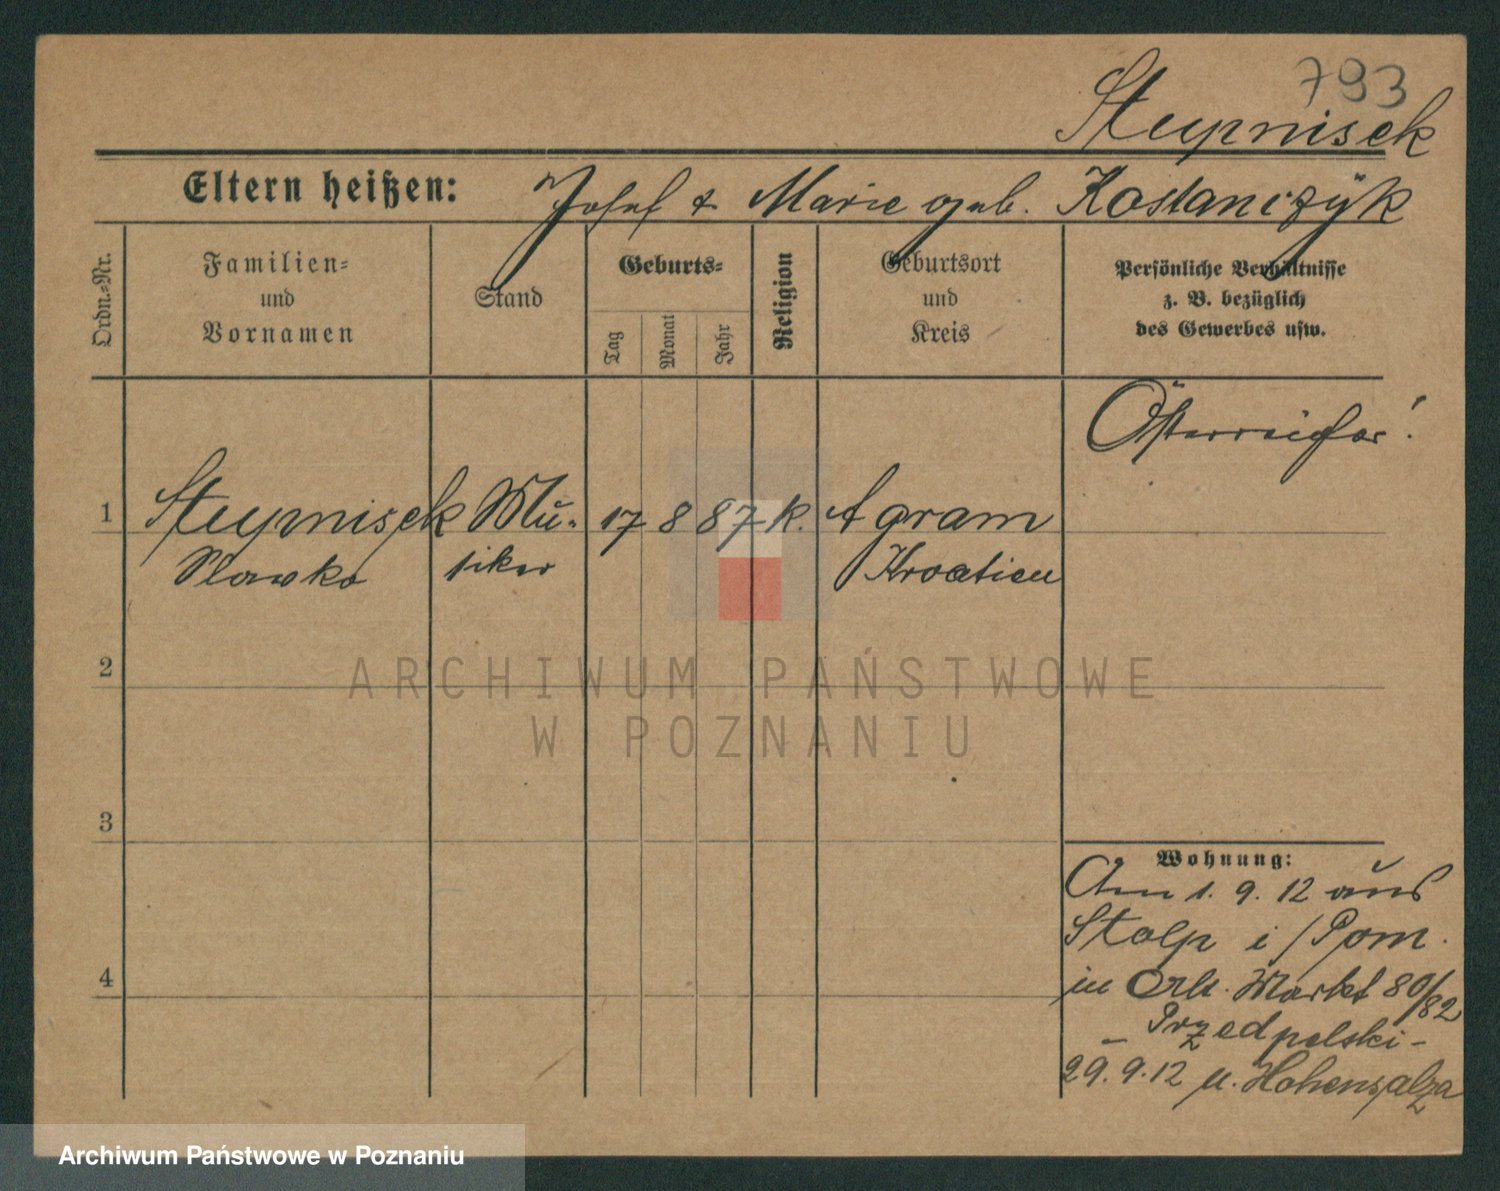 793
Stupnisek
Eltern heißen: Josef & Marie geb. Kostanizÿk
Ordn.-Nr.
Familien-
und
Vornamen
Stand
Geburts-
Tag
Monat
Jahr
Religion
Geburtsort
und
Kreis
Persönliche Verhältnisse
z. B. bezüglich
des Gewerbes usw.
Österreicher!
1 Stupnisek Mu- 17 8 87 k. Agram
Slawko siker Kroatien
2
ARCHIWUM PAŃSTWOWE
W POZNANIU
3
4
Wohnung:
Am 1. 9. 12 aus
Stolp i/Pom.
in Markt 80/82
Przedpelski-
29. 9. 12 n. Hohensalza
Archiwum Państwowe w Poznaniu